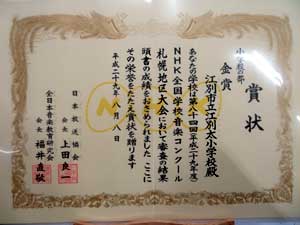 賞状
小学校の部
金賞
江別市立江別太小学校殿
あなたの学校は第八十四回(平成二十九年度)
NHK全国学校音楽コンクール
札幌地区大会において審査の結果
頭書の成績をおさめられました ここに
その栄誉をたたえ賞状を贈ります
平成二十九年 八月 八日
日本放送協会
会長 上田良一
全日本音楽教育研究会
会長 福井直敬